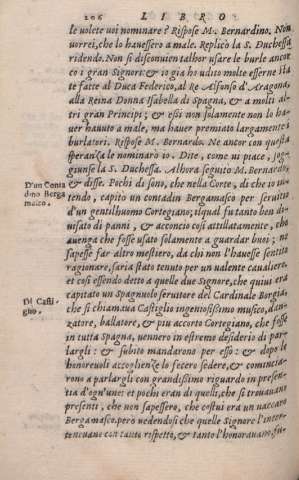 206 LIBRO
le volete voi nominare? Rispose M. Bernardino. Non
vorrei, che lo hauessero a male. Replicò la S. Duchessa
ridendo. Non si disconuien talhor usare le burle ancor
co i gran Signori: & io gia ho udito molte esserne sta
te fatte al Duca Federico, al Re Alfonso d'Aragona,
alla Reina Donna Isabella di Spagna, & a molti al-
tri gran Principi; & essi non solamente non lo ha-
uer hauuto a male, ma hauer premiato largamente i
burlatori. Rispose M. Bernardo. Ne ancor con questa
speranza le nominarò io. Dite, come vi piace, sog-
giunse la S. Duchessa. Alhora seguito M. Bernardo,
D'un Conta
dino Berga
masco.
& disse. Pochi dì sono, che nella Corte, di che io in-
tendo, capitò un contadin Bergamasco per seruitio
d'un gentilhuomo Cortegiano; ilqual fu tanto ben di-
uisato di panni, & acconcio così attillatamente, che
auenga che fosse usato solamente a guardar buoi; ne
sapesse far altro mestiero, da chi non l'hauesse sentito
ragionare, saria stato tenuto per un valente caualiere.
et così essendo detto a quelle due Signore, che quiui era
capitato un Spagnuolo seruitore del Cardinale Borgia,
Di Casti
glio.
che si chiamaua Castiglio ingeniosissimo musico, dan-
zatore, ballatore, & più accorto Cortegiano, che fosse
in tutta Spagna, vennero in estremo desiderio di par-
largli: & subito mandarono per esso: & dopo le
honoreuoli accoglienze lo fecero sedere, & comincia-
rono a parlargli con grandissimo riguardo in presen-
tia d'ogn'uno: et pochi eran di quelli, che si trouauano
presenti, che non sapessero, che costui era un vaccaro
Bergamasco. però uedendosi che quelle Signore l'inter-
teneuano con tanto rispetto, & tanto l'honorauano, fu-